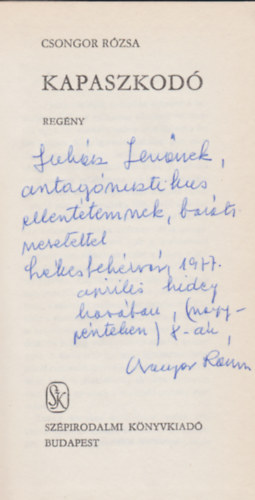 CSONGOR RÓZSA
KAPASZKODÓ
REGÉNY
Juhász Jenőnek,
antagónisztikus
ellentétemnek, baráti
szeretettel
Székesfehérvár 1977.
április hideg
havában, (nagy-
pénteken) 8-án,
Csongor Rózsa
SZÉPIRODALMI KÖNYVKIADÓ
BUDAPEST